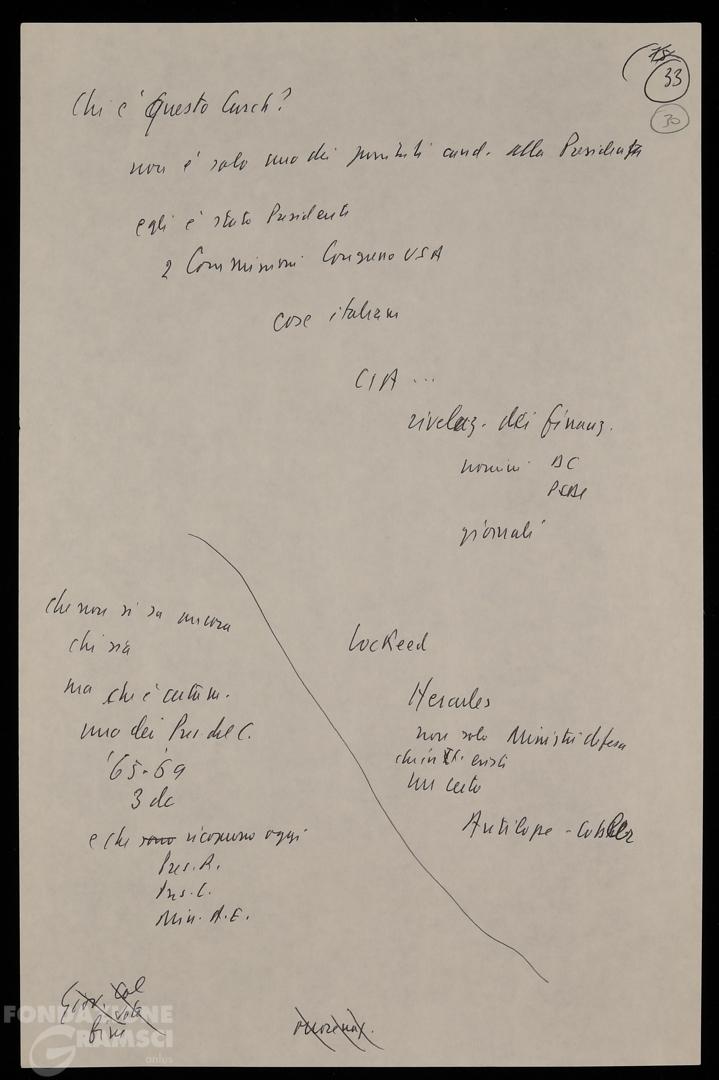 15
33
30
Chi è questo Curch?
non è solo uno dei possibili cand. alla Presidenza
egli è stato Presidente
2 Commissioni Congresso USA
cose italiane
CIA ...
rivelaz. dei finanz.
nomini DC
PSDI
giornali
che non si sa ancora
chi sia
ma che è certam.
uno dei Pres. del C.
'65-'69
3 dc
e che sono ricoprono oggi
Pres. R.
Pres. C.
Min. A.E.
Lockeed
Hercules
non solo Ministri difesa
chi in
un certo
Antilope - Cobbler
FONDAZIONE
GRAMSCI
onlus